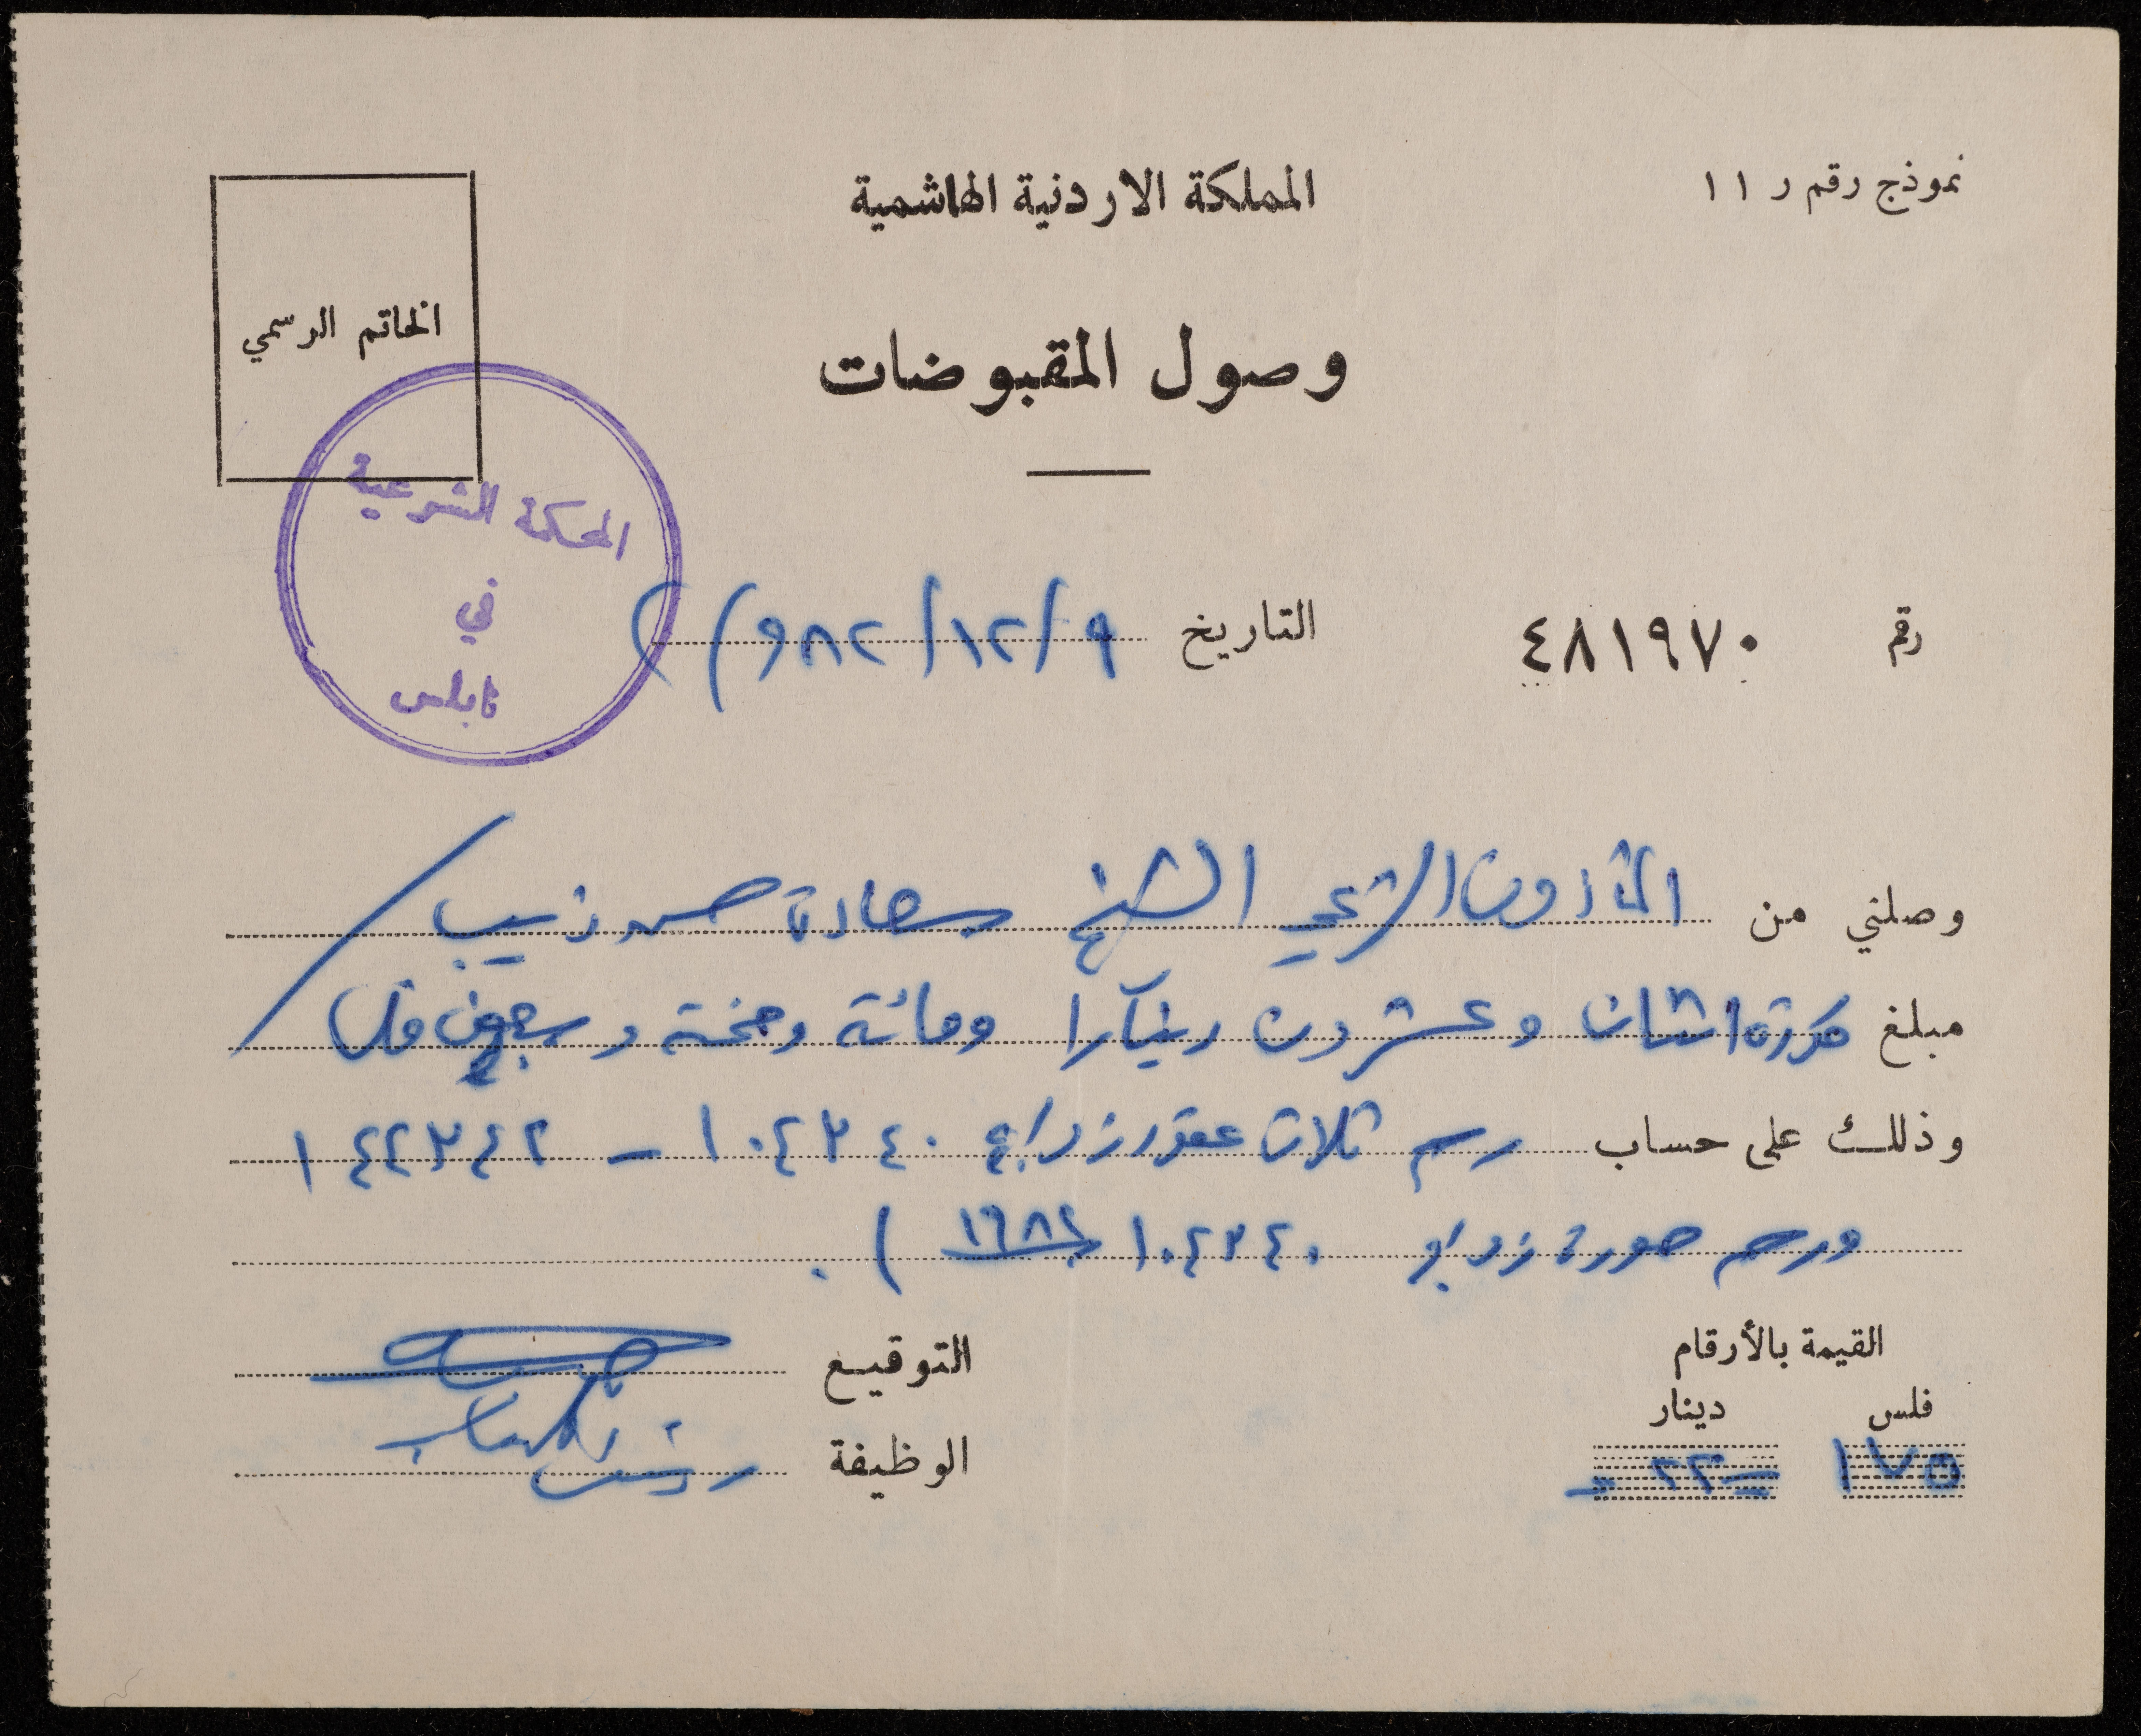 نموذج رقم ر ١١
المملكة الاردنية الهاشمية
الخاتم الرسمي
وصول المقبوضات
المحكمة الشرعية
في
نابلس
رقم ٤٨١٩٧٠
التاريخ ٩/١٢/٩٨٢
وصلني من المأذون الشرعي الشيخ سعادة حسن ذيب
مبلغ اثنان وعشرون دينارا ومائة وخمسة وسبعون فلس
وذلك على حساب رسم ثلاث عقود زواج ١٠٤٣٤٠ - ١٤٢٣٤٢
ورسم صورة زواج ١٠٤٣٤٠
القيمة بالأرقام
فلس دينار
١٧٥ ٢٢
التوقيع
الوظيفة